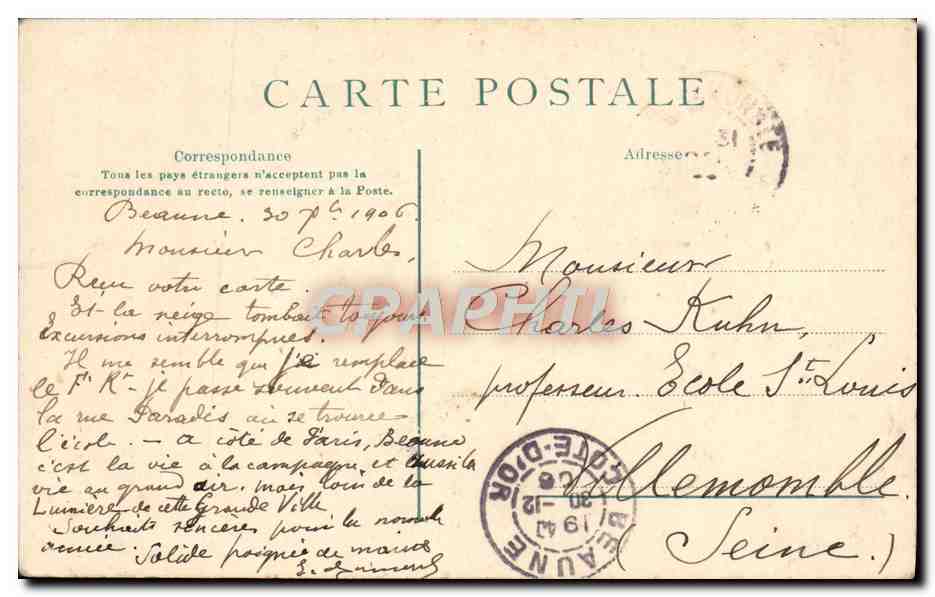 CARTE POSTALE
Correspondance
Tous les pays étrangers n'acceptent pas la
correspondance au recto, se renseigner à la Poste.
Beaune. 30 Xbre 1906.
Monsieur Charles,
Reçu votre carte.
Et la neige tombait toujours
excursions interrompues.
Il me semble que j'ai remplacé
le Fr Rt. Je passe souvent dans
la rue Paradis où se trouve
l'école. — A côté de Paris, Beaune
c'est la vie à la campagne et aussi la
vie au grand air, mais loin de la
Lumière de cette Grande Ville
Souhaits sincères pour la nouvelle
année. Solide poignée de mains
Adresse
Monsieur
Charles Kuhn,
professeur. Ecole St. Louis
Villemomble.
(Seine.)
BEAUNE COTE-D'OR
19 40
30 -12
06
31
CRAPHIL